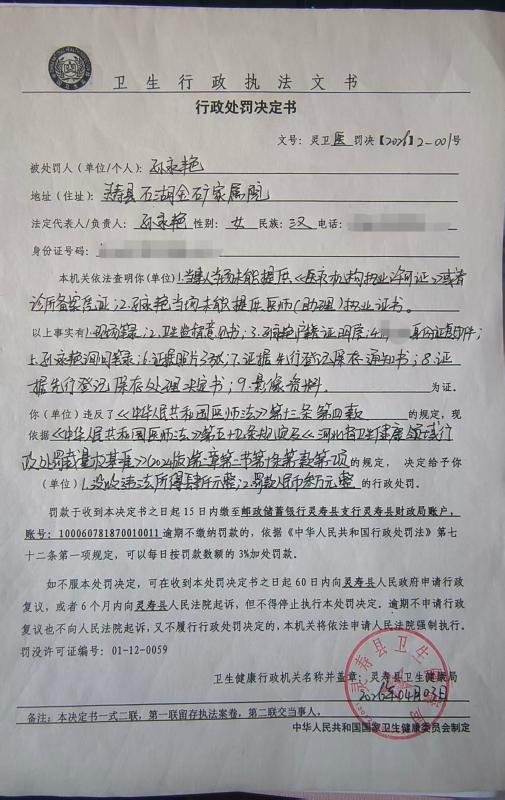 卫生行政执法文书
行政处罚决定书
文号：灵卫医罚决【2025】2-001号
被处罚人（单位/个人）：孙永艳
地址（住址）：灵寿县石湖金矿家属院
法定代表人/负责人：孙永艳 性别：女 民族：汉 电话：
身份证号码：
本机关依法查明你(单位)1.当事人当场未能提供《医疗机构执业许可证》或者
诊所备案凭证；2.孙永艳当场未能提供医师(助理)执业证书。
以上事实有1.现场笔录；2.卫生监督意见书；3.孙永艳户籍证明信；4.身份证复印件；
5.孙永艳询问笔录；6.证据照片3张；7.证据先行登记保存通知书；8.证
据先行登记保存处理决定书；9.影像资料。 为证。
你（单位）违反了《中华人民共和国医师法》第十三条第四款 的规定，现
依据《中华人民共和国医师法》第五十九条规定及《河北省卫生健康领域行
政处罚裁量权基准》(2024版)第二章第二节第 的规定，决定给予你
（单位）1.没收违法所得肆 元整；2.罚款人民币叁万元整 的行政处罚。
罚款于收到本决定书之日起15日内缴至邮政储蓄银行灵寿县支行灵寿县财政局账户，
账号：100060781870010011 逾期不缴纳罚款的，依据《中华人民共和国行政处罚法》第七
十二条第一项规定，可以每日按罚款数额的3%加处罚款。
如不服本处罚决定，可在收到本处罚决定书之日起60日内向灵寿县人民政府申请行政
复议，或者6个月内向灵寿县人民法院起诉，但不得停止执行本处罚决定。逾期不申请行政
复议也不向人民法院起诉，又不履行行政处罚决定的，本机关将依法申请人民法院强制执行。
罚没许可证编号：01-12-0059
卫生健康行政机关名称并盖章：灵寿县卫生健康局
2025年04月03日
备注：本决定书一式二联，第一联留存执法案卷，第二联交当事人。
中华人民共和国国家卫生健康委员会制定